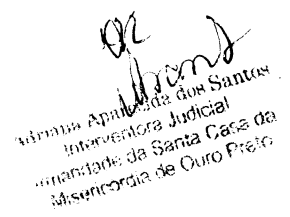 Adriana Aparecida dos Santos
Interventora Judicial
Irmandade da Santa Casa da
Misericórdia de Ouro Preto